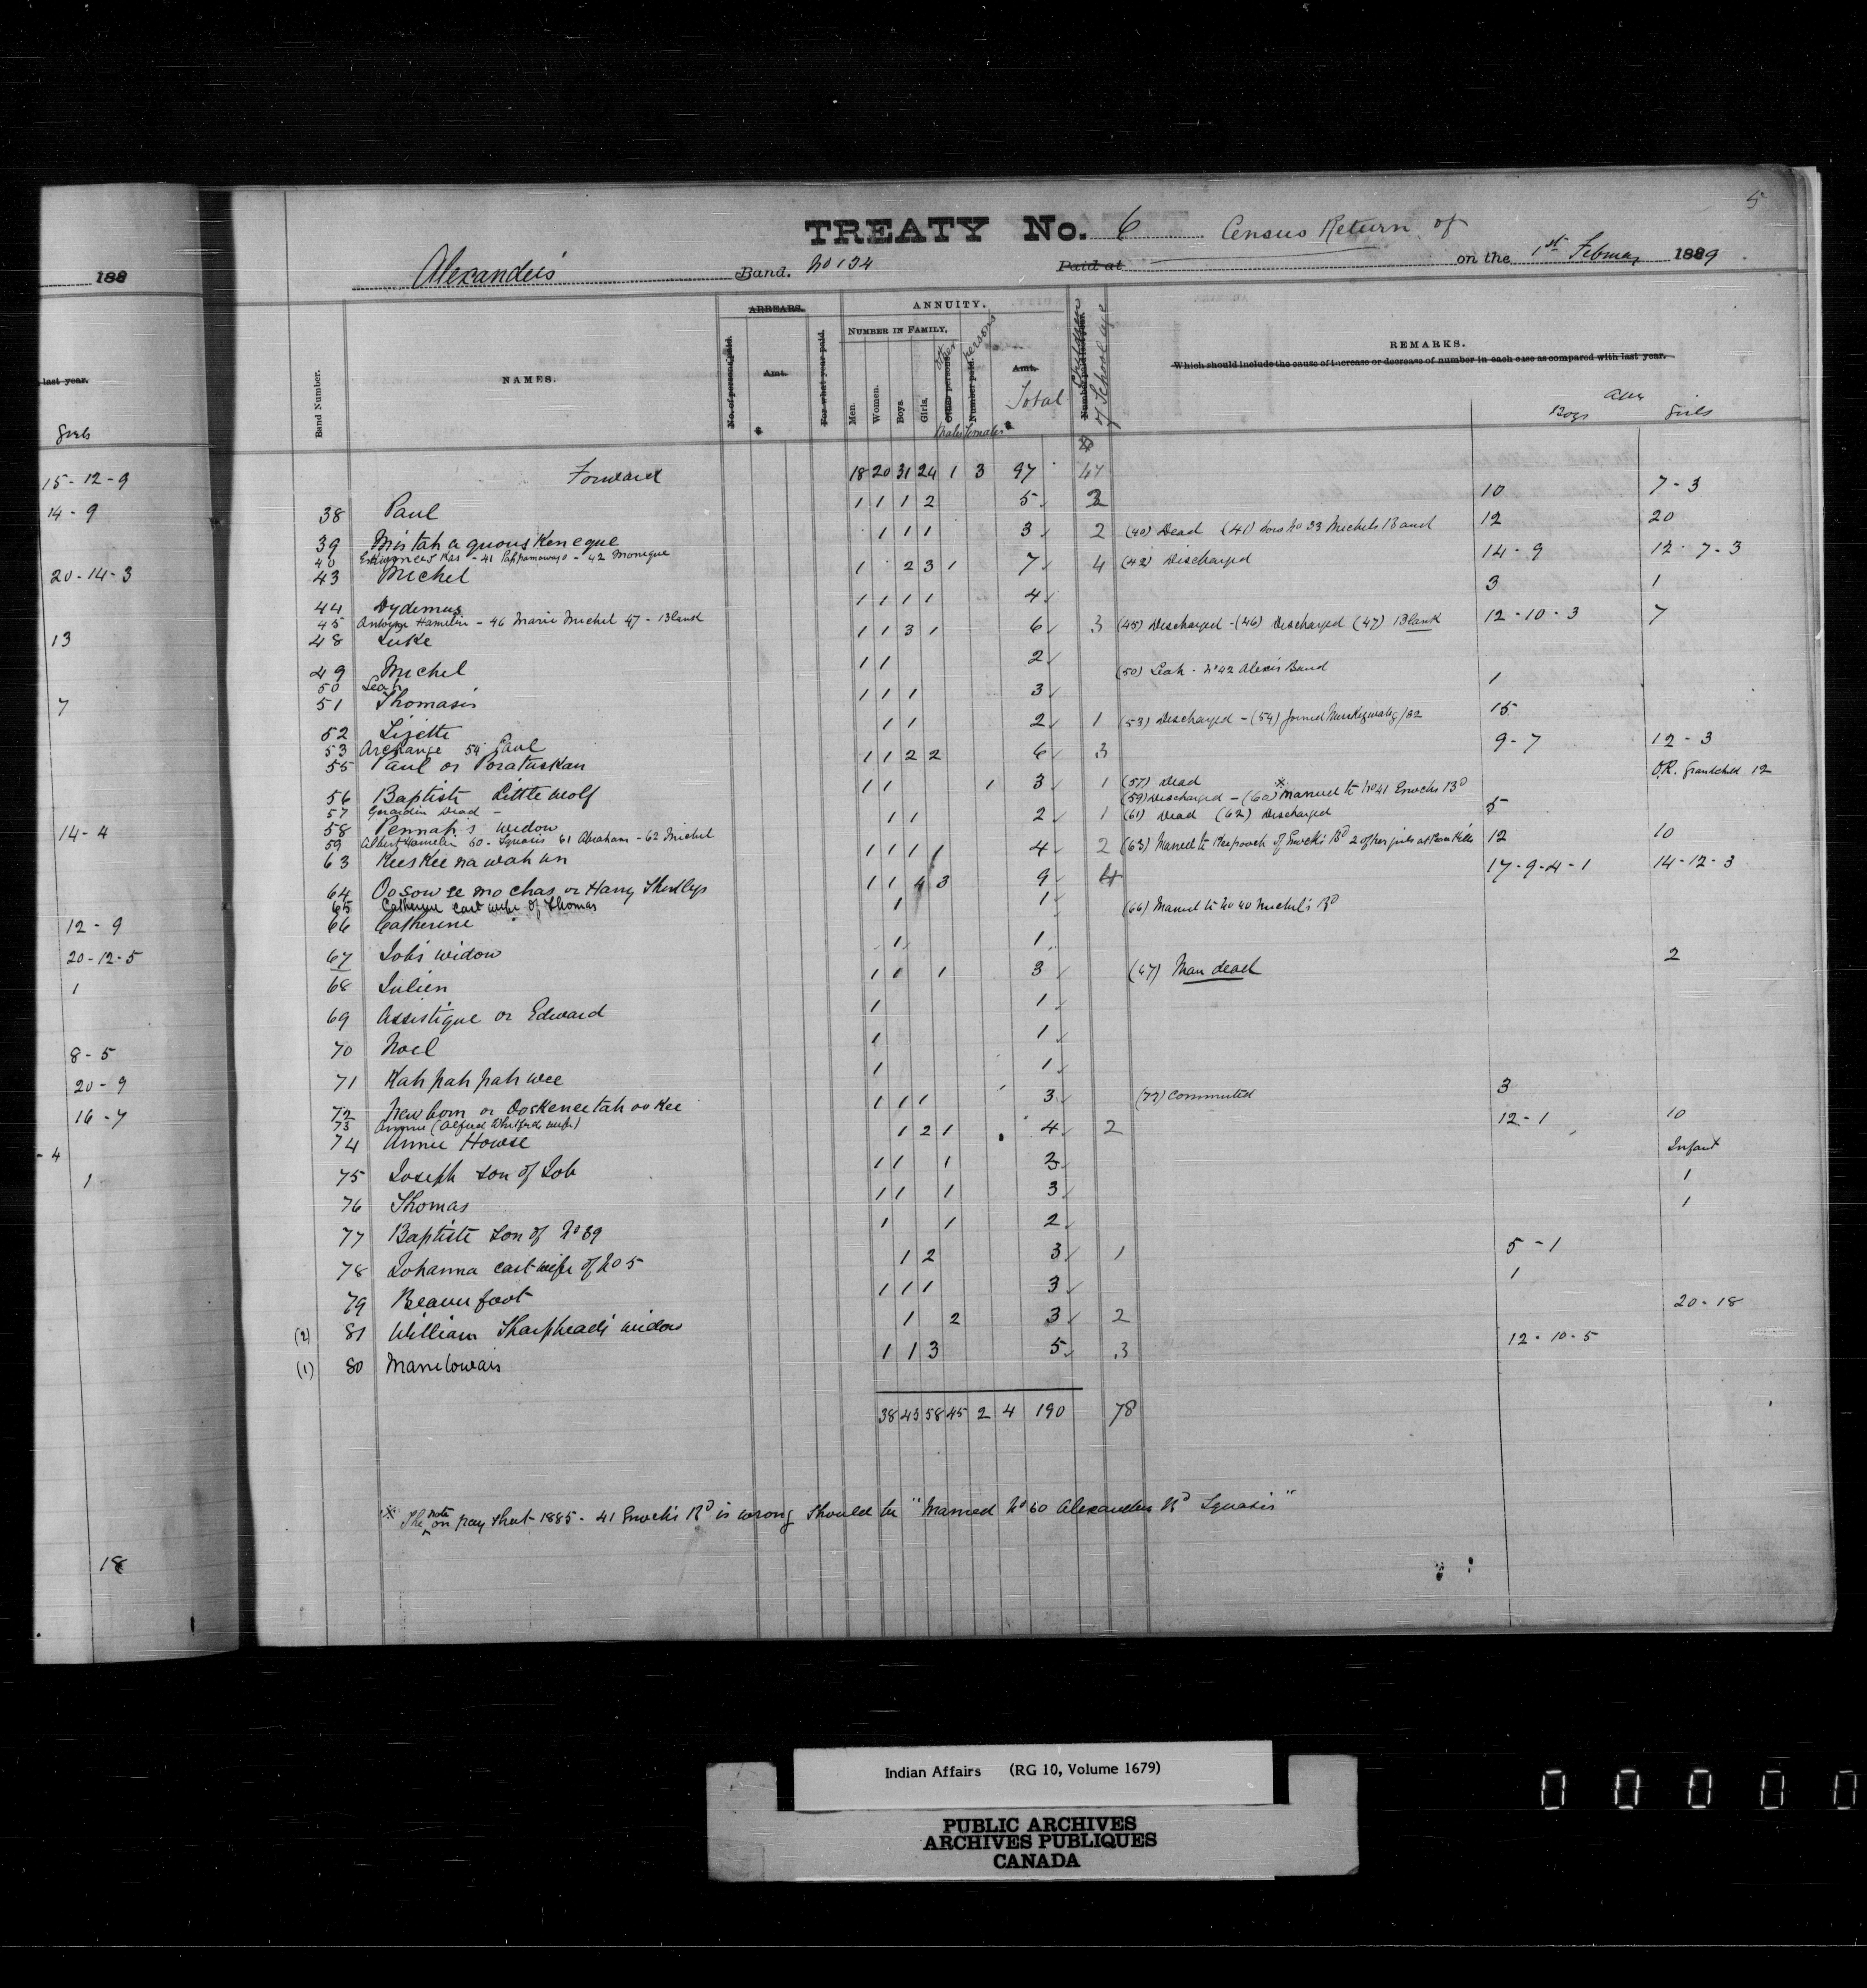 5
TREATY No. 6 Census Return of
Alexander's Band. No 134 Paid at on the 1st February 1889
188
last year.
Girls
15-12-9
14-9
20-14-3
13
7
14-4
12-9
20-12-5
1
8-5
20-9
16-7
-4
1
18
Band Number. NAMES. ARREARS. No. of persons paid. Amt. For what year paid. ANNUITY. NUMBER IN FAMILY. Men. Women. Boys. Girls. Other persons. Number paid. Amt. Total Number paid last year. Children of School age REMARKS.
Which should include the cause of increase or decrease of number in each case as compared with last year.
Males Females Boys Girls
Forward 18 20 31 24 1 3 97 47
38 Paul 1 1 1 2 5 2 10 7-3
39 Mistah a quous Keneque 1 1 1 3 2 (40) Dead (41) now No 33 Michels Band 12 20
40 41 Pahpamawayo - 42 Monique
43 Michel 1 2 3 1 7 4 (42) Discharged 14-9 12-7-3
44 Dydemus 1 1 1 1 4 3 1
45 Antoine Hamelin - 46 Marie Michel 47 - Blank
48 Luke 1 1 3 1 6 3 (45) Discharged - (46) Discharged (47) Blank 12-10-3 7
49 Michel 1 1 2
50 Leah (50) Leah - No 42 Alexis Band
51 Thomasis 1 1 1 3 1
52 Lizette 1 1 2 1 (53) Discharged - (54) joined Muskegwatig /82 15
53 Archange 54 Paul
55 Paul or Poratuskan 1 1 2 2 6 3 9-7 12-3
56 Baptiste Little wolf 1 1 1 3 1 (57) Dead O.R. Grandchild 12
57 Gerardin Dead - (59) Discharged - (60) * Married to No 41 Enochs Bd
58 Pennah's widow 1 1 2 1 (61) Dead (62) Discharged 5
59 Albert Hamelin 60 - Squasis 61 Abraham - 62 Michel
63 Kees Kee na wah un 1 1 1 1 4 2 (63) Married to of Enoch's Bd 2 of her girls at 12 10
64 Oo sow ee mo chas or Harry 1 1 4 3 9 4 17-9-4-1 14-12-3
65 Catherine cast wife of Thomas 1 1
66 Catherine (66) Married to No 40 Michel's Bd
67 Job's widow 1 1
68 Julien 1 1 1 3 (67) Man dead 2
69 Assistique or Edward 1 1
70 Noel 1 1
71 Kah pah pah wee 1 1
72 New born or Ooskeneetah oo Kee 1 1 1 3 (72) Commuted 3
73 Annie (Alfred Whitford wife)
74 Annie Howse 1 2 1 4 2 12-1 10
75 Joseph son of Job 1 1 1 3 Infant
76 Thomas 1 1 1 3 1
77 Baptiste son of No 39 1 1 2 1
78 Johanna cast wife of No 5 1 2 3 1 5-1
79 Beaver foot 1 1 1 3 1
(2) 81 William Sharphead's widow 1 2 3 2 20-18
(1) 80 Manitowais 1 1 3 5 3 12-10-5
38 43 58 45 2 4 190 78
* The note on pay sheet 1885 - 41 Enoch's Bd is wrong should be "Married No 60 Alexanders Bd Squasis"
Indian Affairs (RG 10, Volume 1679)
PUBLIC ARCHIVES
ARCHIVES PUBLIQUES
CANADA
0 0 0 0 0